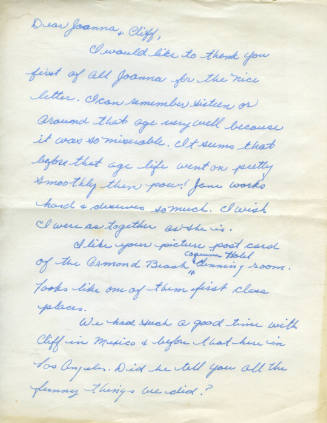 Dear Joanna & Cliff,
I would like to thank you
first of all Joanna for the nice
letter. I can remember sixteen or
around that age very well because
it was so miserable. It sums that
before that age life went on pretty
smoothly then pow! Jane works
hard & deserves so much. I wish
I were as together as she is.
I like your picture post card
Coquina Hotel
of the Ormond Beach Dinning room.
Looks like one of them first class
places.
We had such a good time with
Cliff in Mexico & before that here in
Los Angeles. Did he tell you all the
funny things we did?